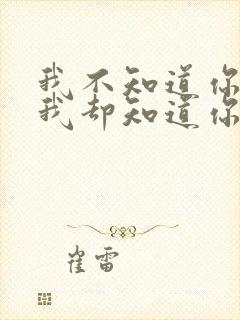 我不知道你
我却知道你
崔雷